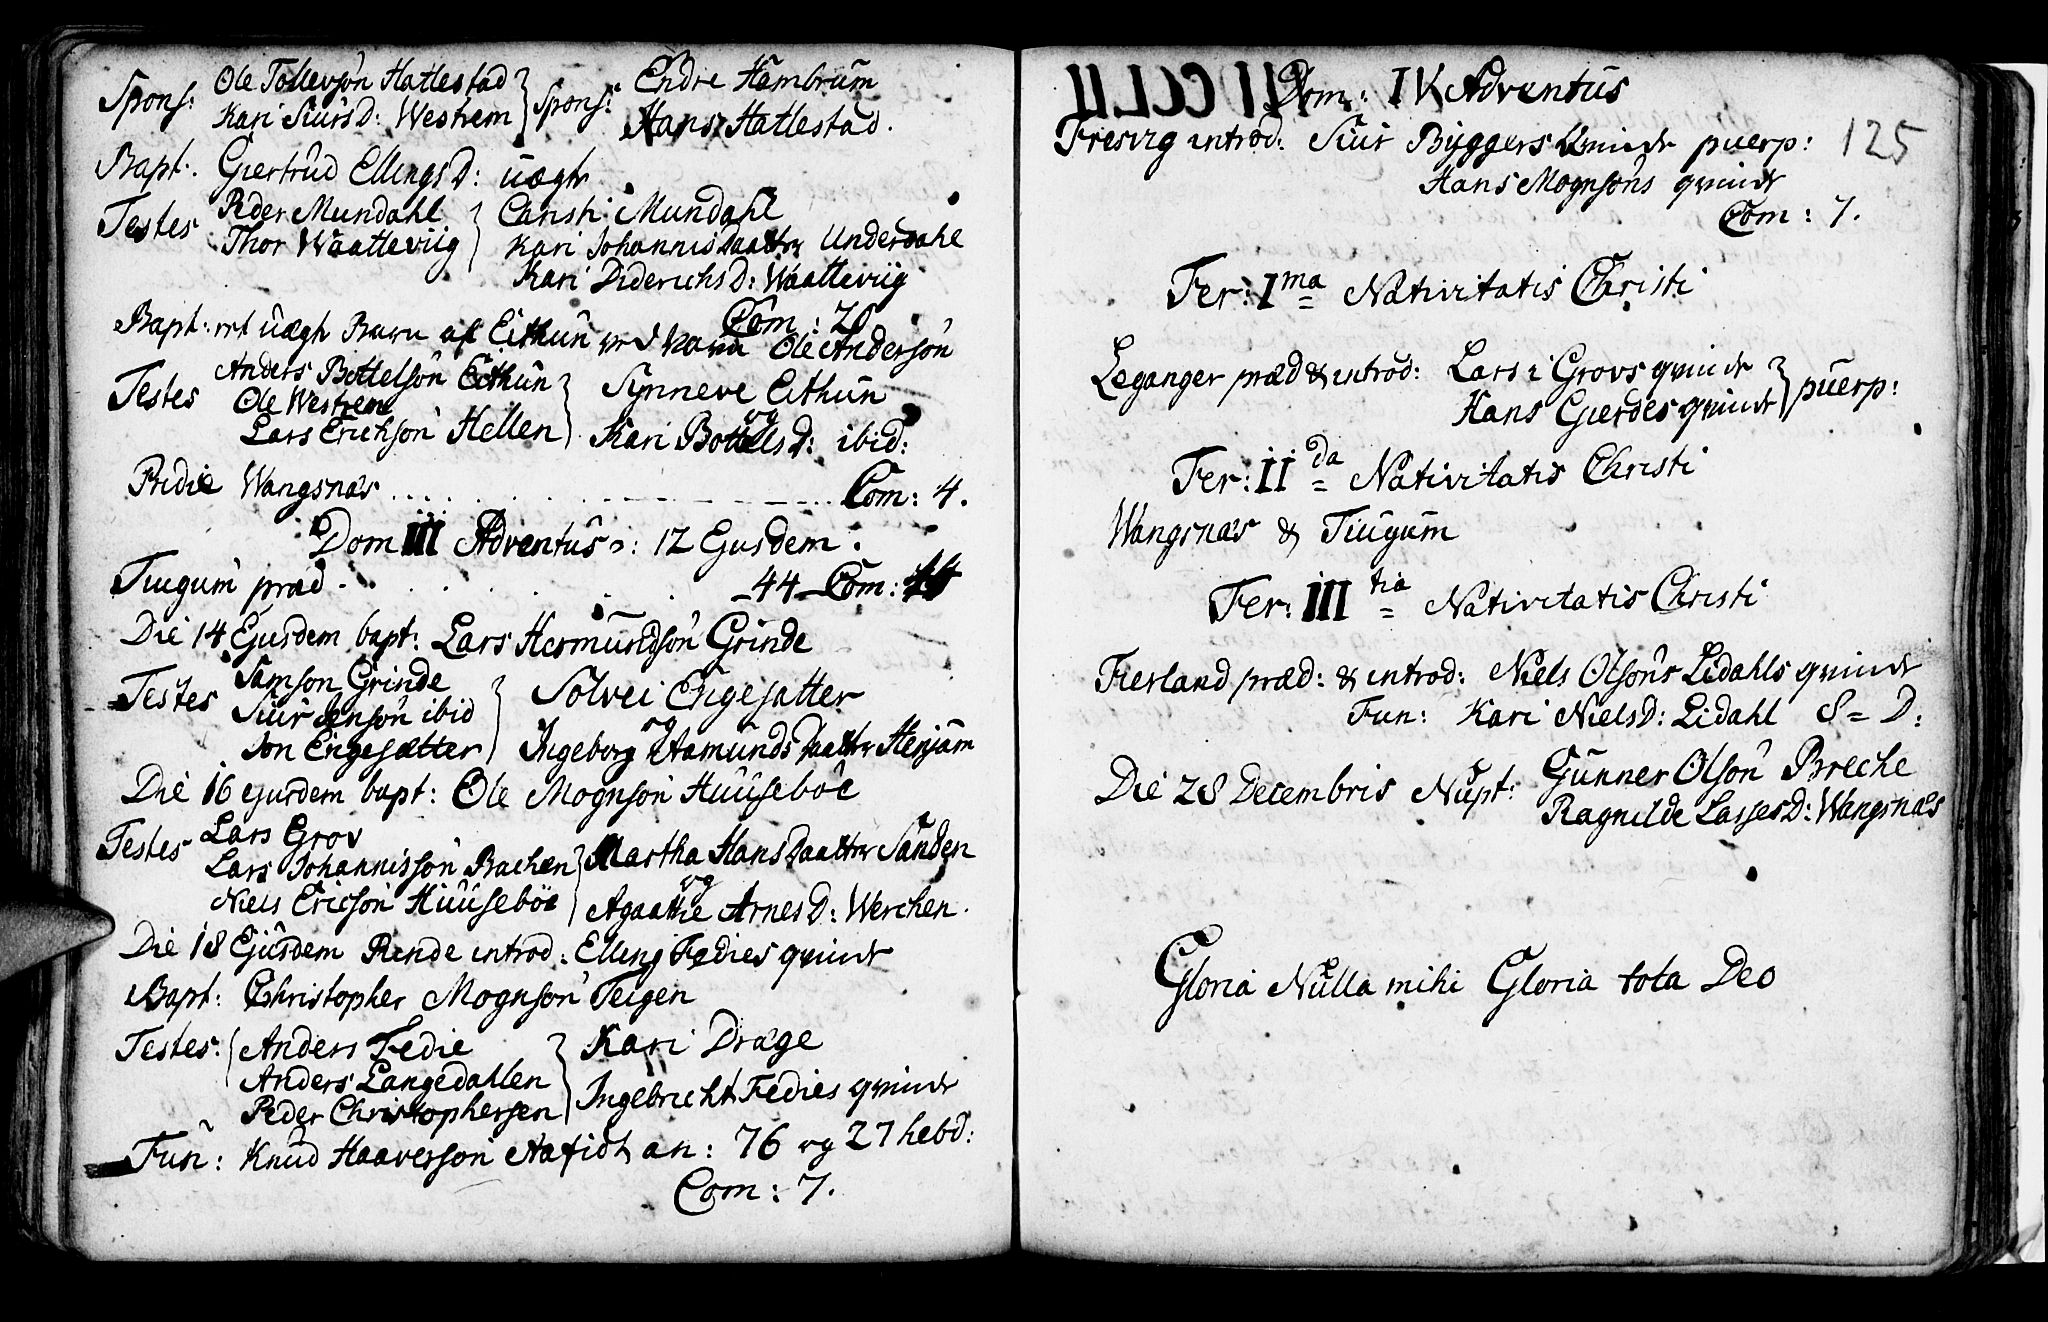 Spons: Ole Tollevsön Hatlestad } Spons: Endre Hambrum
Kari SiursD: Westrem } Hans Hatlestad.
Bapt. Giertrud EllingsD: uægte
Testes Peder Mundahl } Christi Mundahl
Thor Waatteviig } Kari Johannisdaatter Underdahl
Kari DiderichsD: Waatteviig
Com: 20
Bapt: uægte Barn af Eithun Ole Andersön
Testes Anders Bottelsön Eithun } Synneve Eithun
Ole Westrem og
Lars Erichsön Hellen } Kari BottelsD: ibid:
Pridie Wangsnæs . . . . . Com: 4.
Dom III Adventus : 12 Ejusdem.
Tiugum præd . . . . . 44 Com:
Die 14 Ejusdem bapt: Lars Hermundsön Grinde
Testes Samson Grinde } Solvei Engesatter
Siur Jensön ibid og
Jon Engesætter } Ingeborg Aamundsdaatter Henjum
Die 16 ejusdem bapt: Ole Mognsön Huuseböe
Testes Lars Grov
Lars Johannissön Bachen } Martha Hansdaatter Sanden
og
Niels Ericsön Huuseböe } Agaathe ArnesD: Werchen.
Die 18 Ejusdem Rinde introd: Elling Fedies qvinde
Bapt: Christopher Mognsön Teigen
Testes: Anders Fedie } Kari Drage
Anders Langedahlen
Peder Christophersen } Ingebricht Fedies qvinde
Fun: Knud Haaversön an: 76 og 27 hebd:
Com: 7.
Dom: IV Adventus
125
Fresvig introd: Siur Byggers qvinde puerp:
Hans Mognsöns qvinde
Com: 7.
Fer: I ma Nativitatis Christi
Leganger præd & introd: Lars i Grovs qvinde } puerp:
Hans Gierdes qvinde
Fer: II da Nativitatis Christi
Wangsnæs & Tiugum
Fer: III tia Nativitatis Christi
Fierland præd: & introd: Niels Olsöns Lidahls qvinde
Fun: Kari NielsD: Lidahl 8 = D:
Die 28 Decembris Nupt: Gunner Olsön Breche
Ragnilde LassesD: Wangsnæs
Gloria Nulla mihi Gloria tota Deo